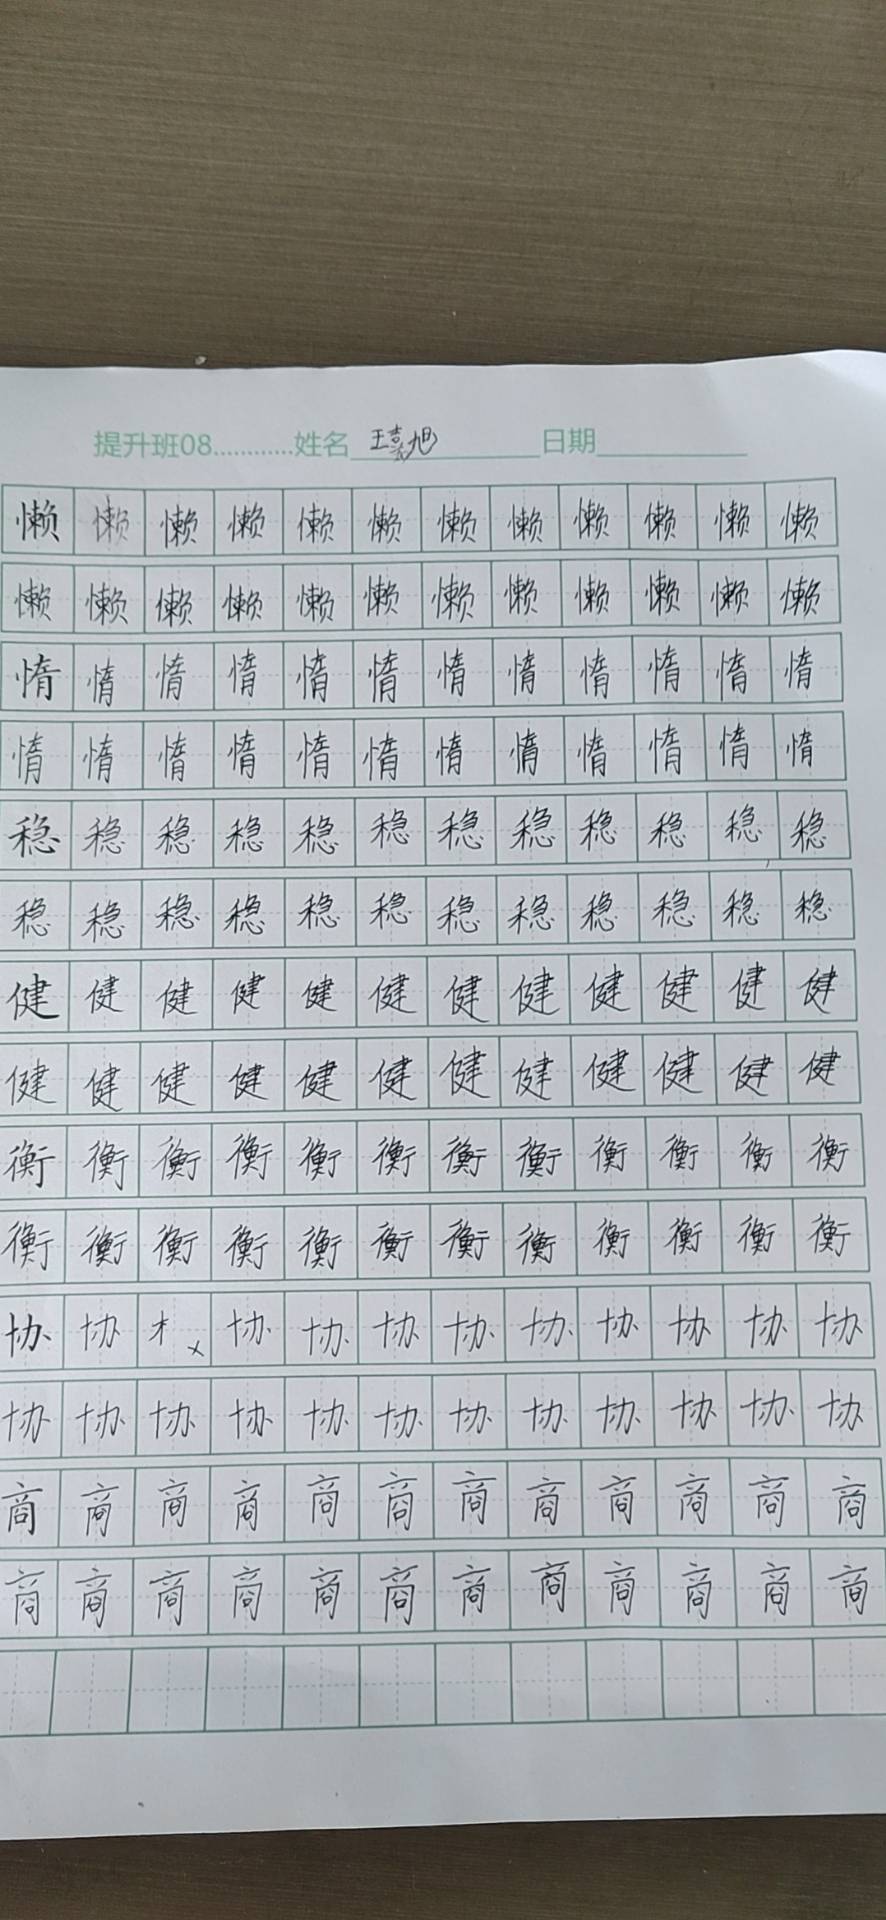 提升班08............姓名 王嘉旭 日期
懒懒懒懒懒懒懒懒懒懒懒懒
懒懒懒懒懒懒懒懒懒懒懒懒
惰惰惰惰惰惰惰惰惰惰惰惰
惰惰惰惰惰惰惰惰惰惰惰惰
稳稳稳稳稳稳稳稳稳稳稳稳
稳稳稳稳稳稳稳稳稳稳稳稳
健健健健健健健健健健健健
健健健健健健健健健健健健
衡衡衡衡衡衡衡衡衡衡衡衡
衡衡衡衡衡衡衡衡衡衡衡衡
协协木x协协协协协协协协协
协协协协协协协协协协协协
商商商商商商商商商商商商
商商商商商商商商商商商商